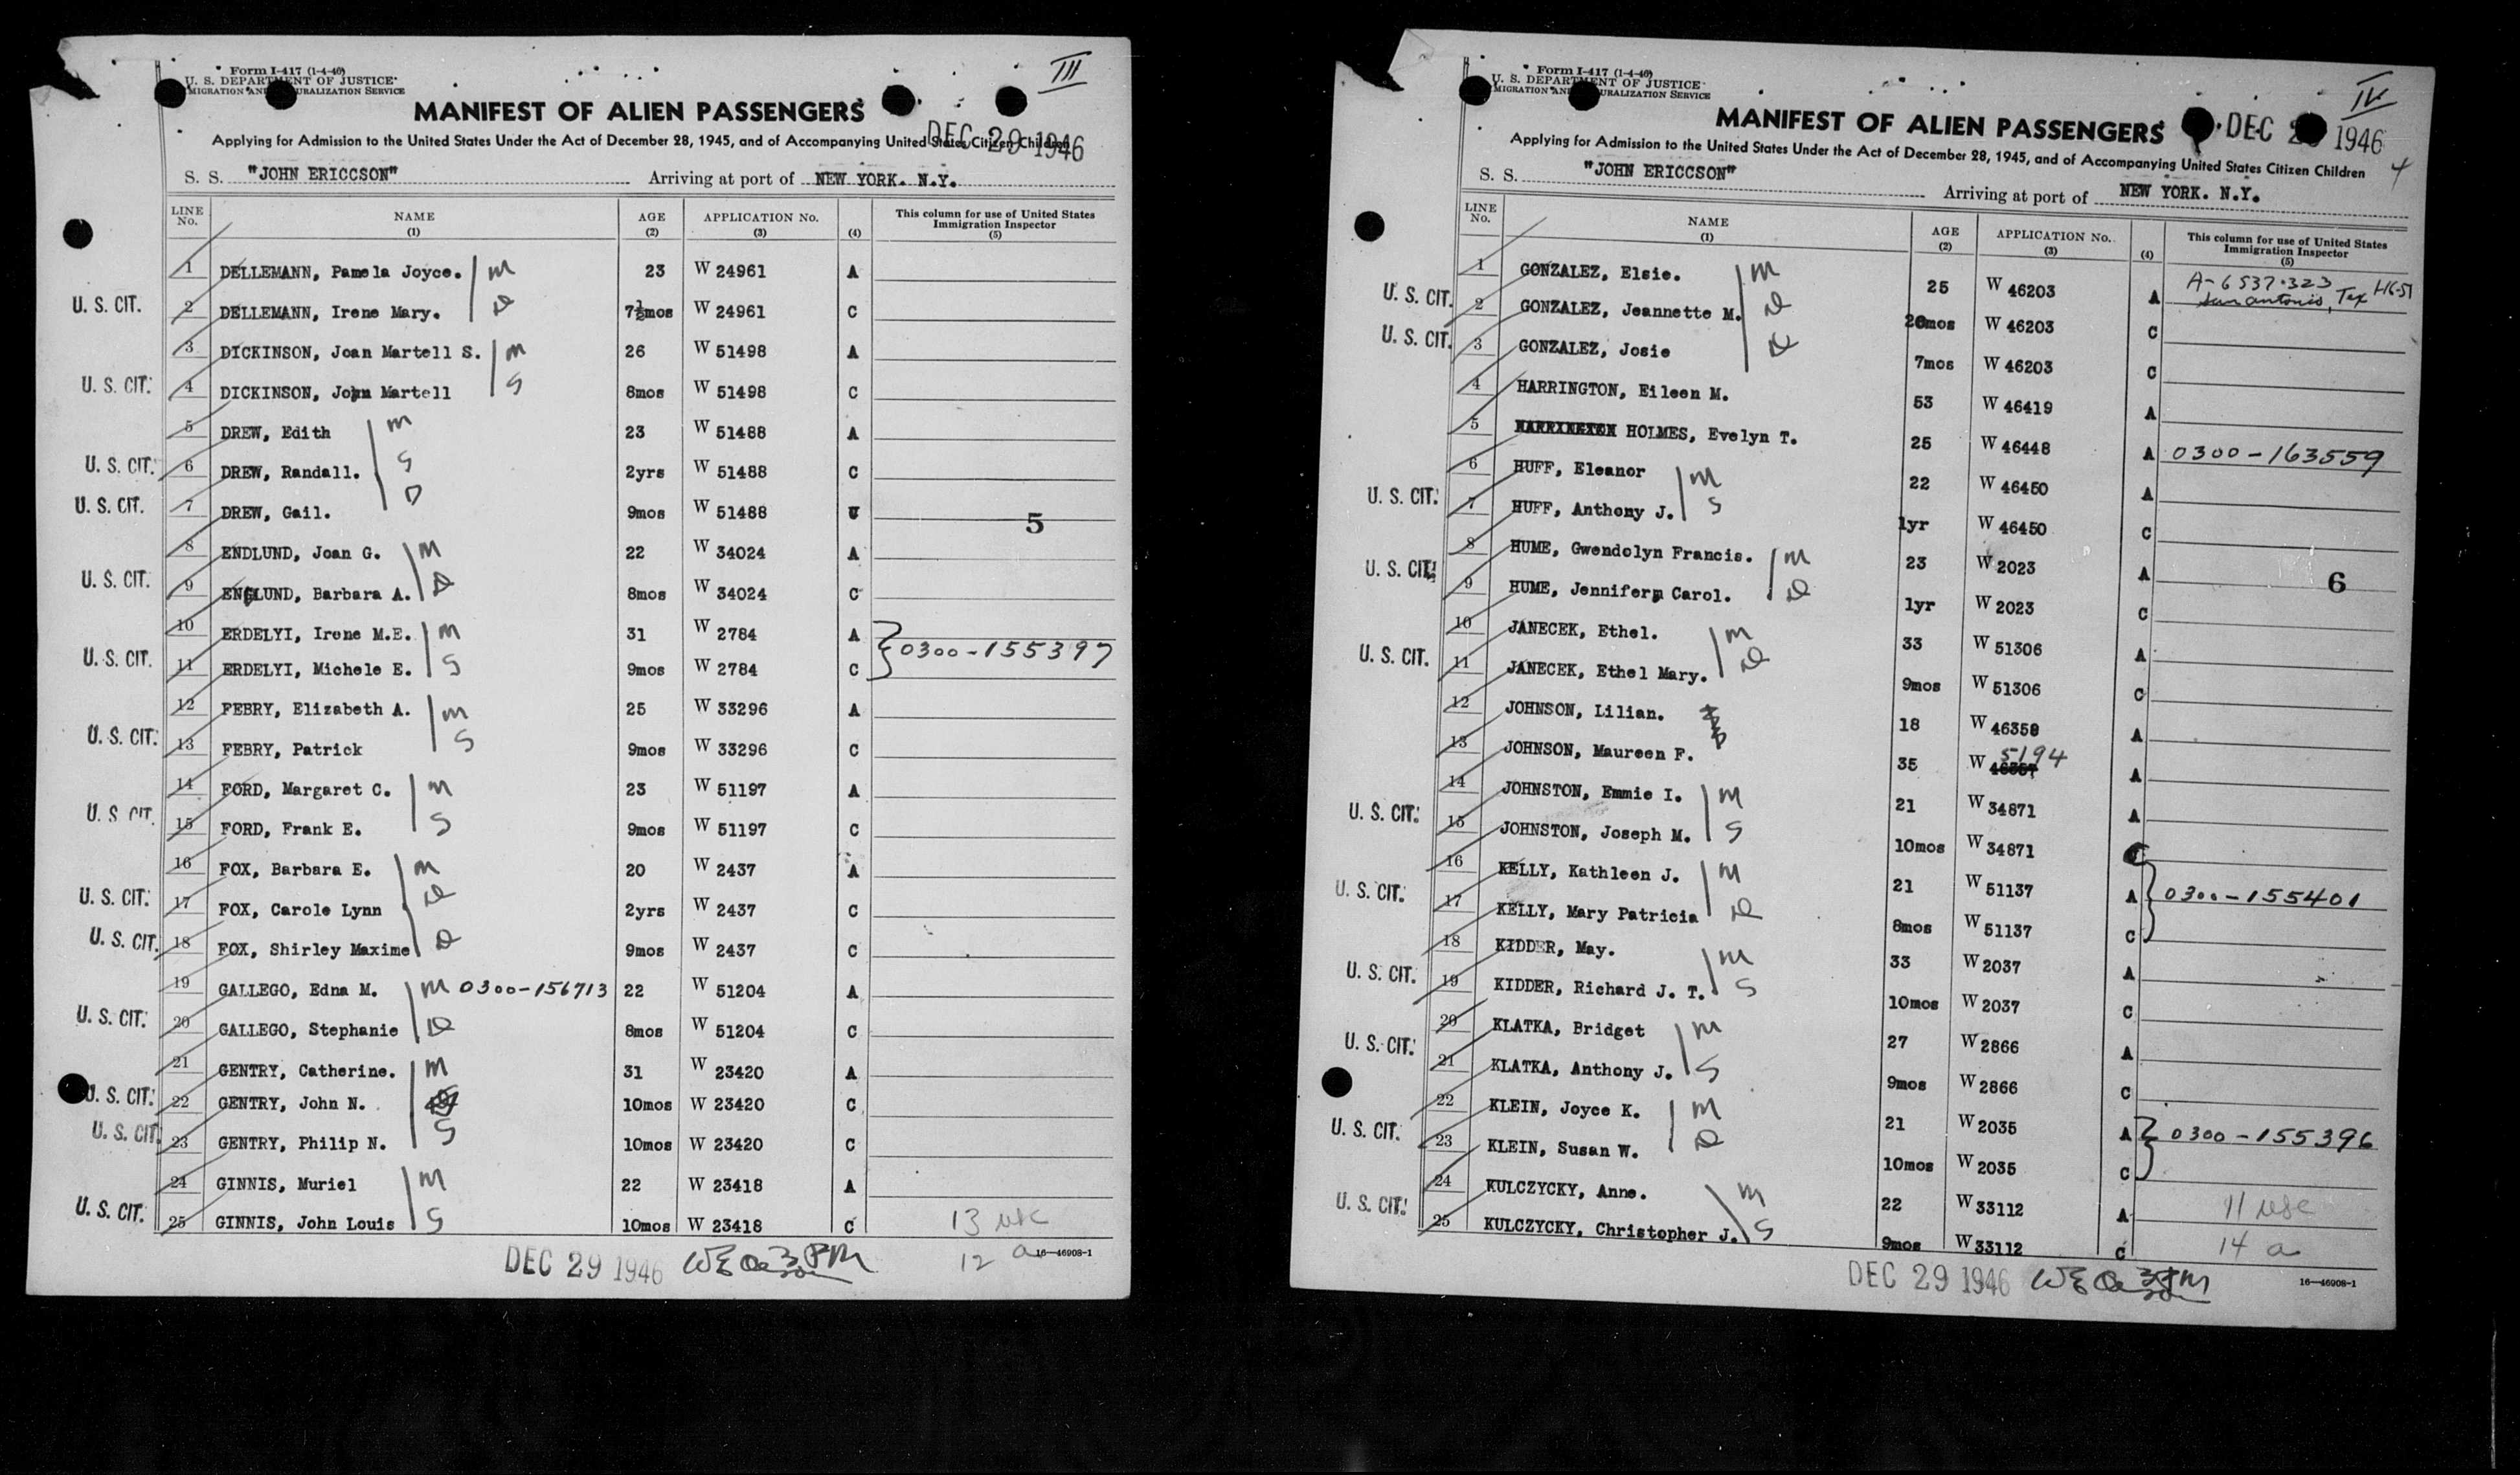 III
Form I-417 (1-4-46)
U. S. DEPARTMENT OF JUSTICE
MIGRATION AN URALIZATION SERVICE
MANIFEST OF ALIEN PASSENGERS
Applying for Admission to the United States Under the Act of December 28, 1945, and of Accompanying United States Citizen Children
DEC 29 1946
S. S. "JOHN ERICCSON" Arriving at port of NEW YORK. N.Y.
LINE No. NAME (1) AGE (2) APPLICATION No. (3) (4) This column for use of United States Immigration Inspector (5)
1 DELLEMANN, Pamela Joyce. M 23 W 24961 A
U. S. CIT. 2 DELLEMANN, Irene Mary. D 7½mos W 24961 C
3 DICKINSON, Joan Martell S. M 26 W 51498 A
U. S. CIT. 4 DICKINSON, John Martell S 8mos W 51498 C
5 DREW, Edith M 23 W 51488 A
U. S. CIT. 6 DREW, Randall. S 2yrs W 51488 C
U. S. CIT. 7 DREW, Gail. D 9mos W 51488 C 5
8 ENDLUND, Joan G. M 22 W 34024 A
U. S. CIT. 9 ENGLUND, Barbara A. D 8mos W 34024 C
10 ERDELYI, Irene M.E. M 31 W 2784 A
0300-155397
U. S. CIT. 11 ERDELYI, Michele E. S 9mos W 2784 C
12 FEBRY, Elizabeth A. M 25 W 33296 A
U. S. CIT. 13 FEBRY, Patrick S 9mos W 33296 C
14 FORD, Margaret C. M 23 W 51197 A
U. S CIT. 15 FORD, Frank E. S 9mos W 51197 C
16 FOX, Barbara E. M 20 W 2437 A
U. S. CIT. 17 FOX, Carole Lynn D 2yrs W 2437 C
U. S. CIT. 18 FOX, Shirley Maxime D 9mos W 2437 C
19 GALLEGO, Edna M. M 0300-156713 22 W 51204 A
U. S. CIT. 20 GALLEGO, Stephanie D 8mos W 51204 C
21 GENTRY, Catherine. M 31 W 23420 A
U. S. CIT. 22 GENTRY, John N. 10mos W 23420 C
U. S. CIT. 23 GENTRY, Philip N. S 10mos W 23420 C
24 GINNIS, Muriel M 22 W 23418 A
U. S. CIT. 25 GINNIS, John Louis S 10mos W 23418 C
13 usc
12 a
16—46908-1
DEC 29 1946
IV
Form I-417 (1-4-46)
U. S. DEPARTMENT OF JUSTICE
MIGRATION AN URALIZATION SERVICE
MANIFEST OF ALIEN PASSENGERS
DEC 2 1946
Applying for Admission to the United States Under the Act of December 28, 1945, and of Accompanying United States Citizen Children
4
S. S. "JOHN ERICCSON" Arriving at port of NEW YORK. N.Y.
LINE No. NAME (1) AGE (2) APPLICATION No. (3) (4) This column for use of United States Immigration Inspector (5)
1 GONZALEZ, Elsie. M 25 W 46203 A A-6537-323 San Antonio, Tex
U. S. CIT. 2 GONZALEZ, Jeannette M. D 26mos W 46203 C
U. S. CIT. 3 GONZALEZ, Josie D 7mos W 46203 C
4 HARRINGTON, Eileen M. 53 W 46419 A
5 HARRINGTON HOLMES, Evelyn T. 25 W 46448 A 0300-163559
6 HUFF, Eleanor M 22 W 46450 A
U. S. CIT. 7 HUFF, Anthony J. S 1yr W 46450 C
8 HUME, Gwendolyn Francis. M 23 W 2023 A 6
U. S. CIT. 9 HUME, Jennifer Carol. D 1yr W 2023 C
10 JANECEK, Ethel. M 33 W 51306 A
U. S. CIT. 11 JANECEK, Ethel Mary. D 9mos W 51306 C
12 JOHNSON, Lilian. 18 W 46358 A
13 JOHNSON, Maureen F. 35 W 46357 5194 A
14 JOHNSTON, Emmie I. M 21 W 34871 A
U. S. CIT. 15 JOHNSTON, Joseph M. S 10mos W 34871
16 KELLY, Kathleen J. M 21 W 51137 A 0300-155401
U. S. CIT. 17 KELLY, Mary Patricia D 8mos W 51137 C
18 KIDDER, May. M 33 W 2037 A
U. S. CIT. 19 KIDDER, Richard J. T. S 10mos W 2037 C
20 KLATKA, Bridget M 27 W 2866 A
U. S. CIT. 21 KLATKA, Anthony J. S 9mos W 2866 C
22 KLEIN, Joyce K. M 21 W 2035 A 0300-155396
U. S. CIT. 23 KLEIN, Susan W. D 10mos W 2035 C
24 KULCZYCKY, Anne. M 22 W 33112 A 11 usc
U. S. CIT. 25 KULCZYCKY, Christopher J. S 9mos W 33112 C 14 a
DEC 29 1946
16—46908-1